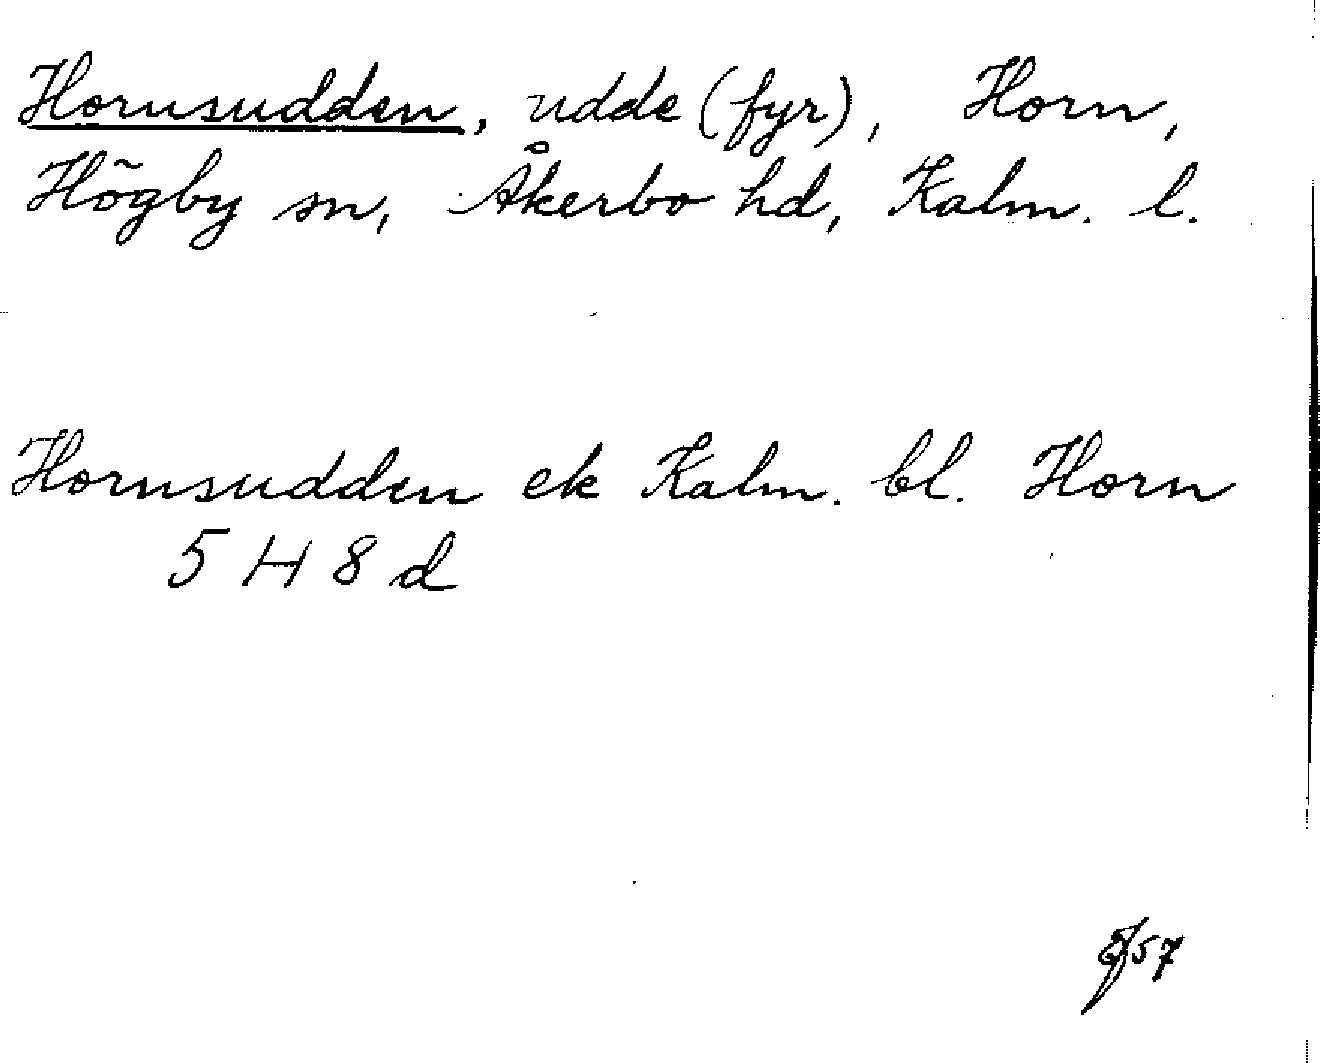 Hornsudden, udde (fyr), Horn,
Högby sn, Åkerbo hd, Kalm. l.
Hornsudden ek Kalm. bl. Horn
5 H 8 d
57